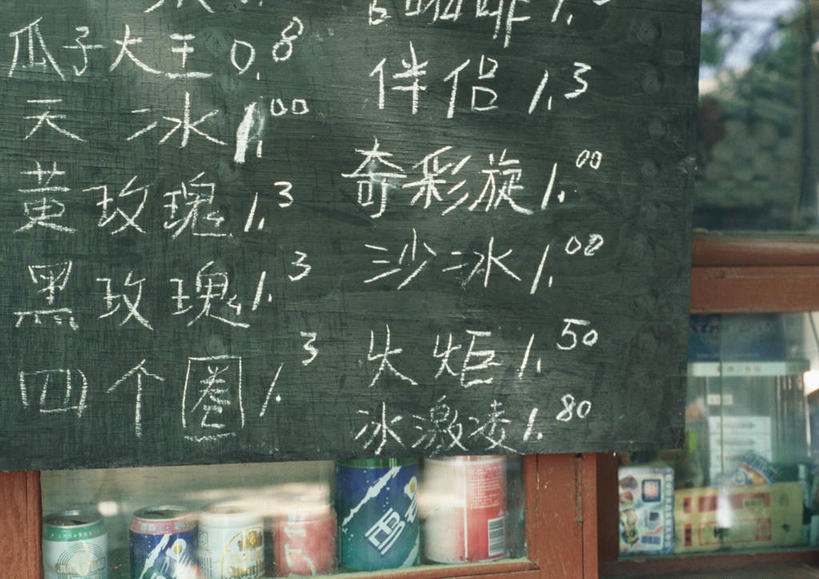 瓜子大王 0.8
天冰 1.00
黄玫瑰 1.3
黑玫瑰 1.3
四个圈 1.3
咖啡 1.
伴侣 1.3
奇彩旋 1.00
沙冰 1.00
火炬 1.50
冰激凌 1.80
雪碧